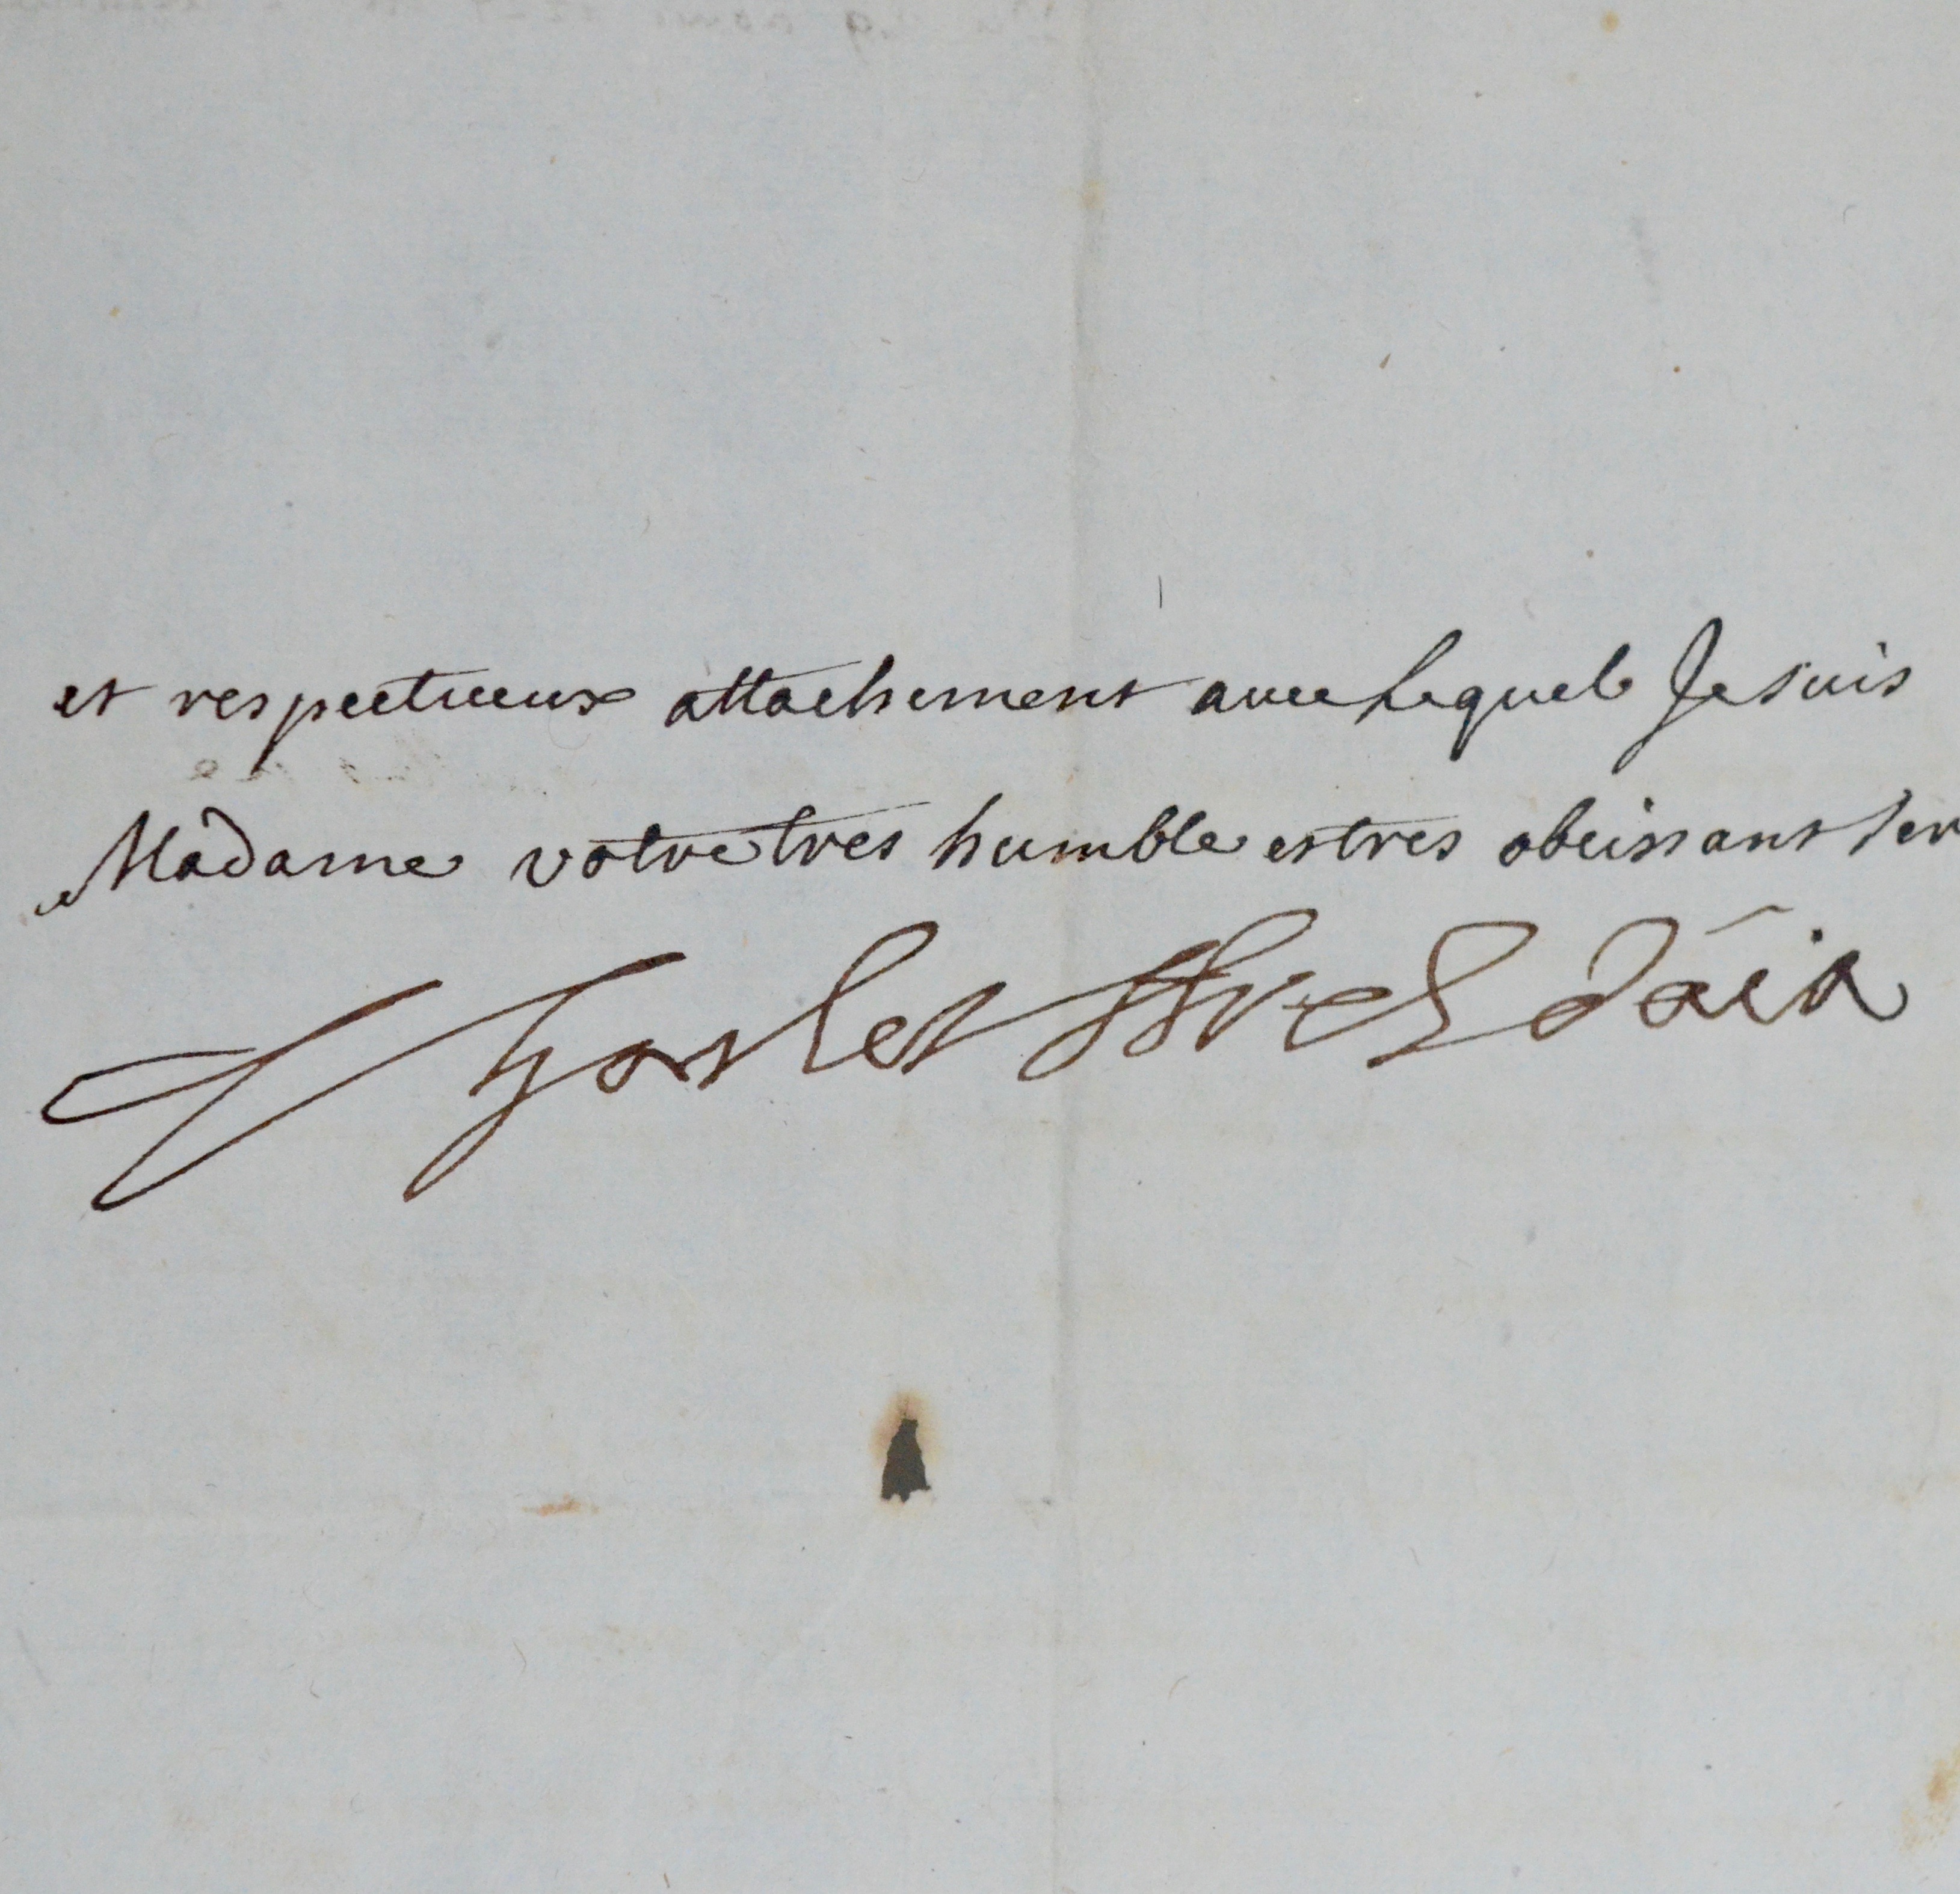 et respectueux attachement avec lequel Je suis
Madame votre tres humble et tres obeissant ser
Charles